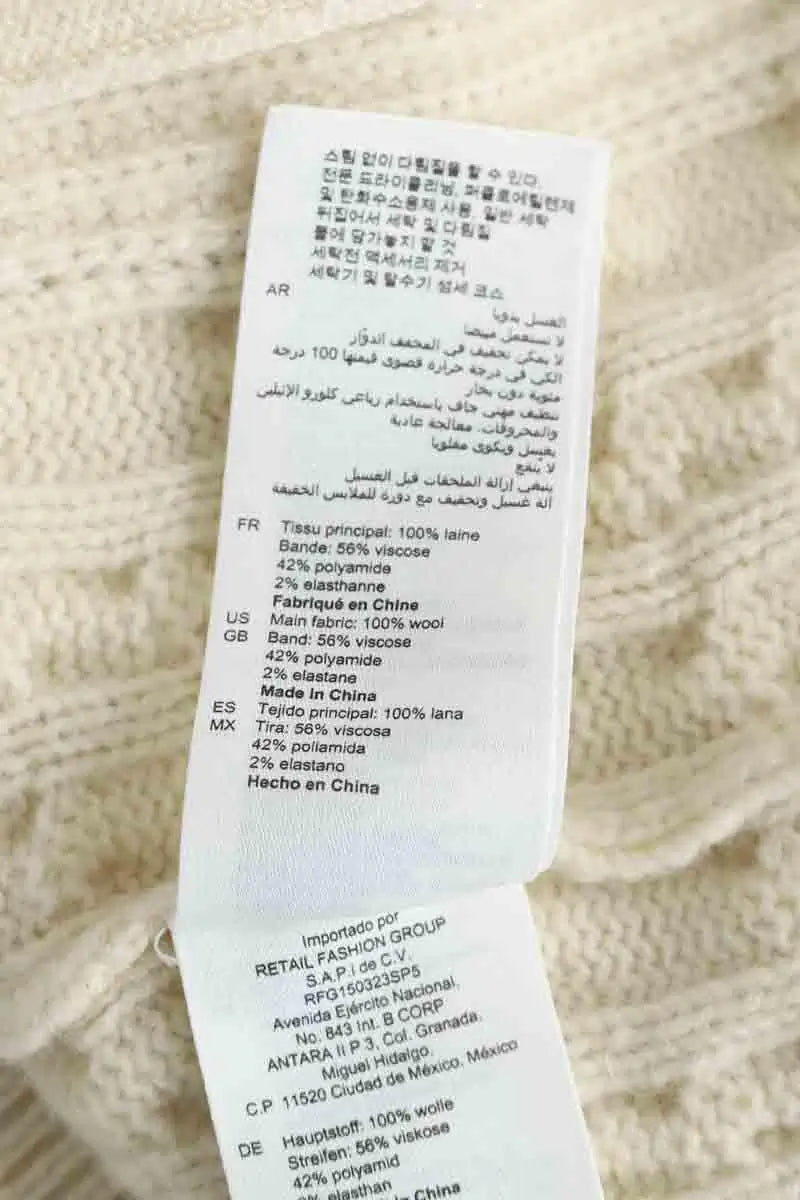 스팀 없이 다림질을 할 수 있다.
전문 드라이클리닝, 퍼클로에틸렌제
및 탄화수소용제 사용. 일반 세탁
뒤집어서 세탁 및 다림질
물에 담가놓지 말 것
세탁전 액세서리 제거
세탁기 및 탈수기 섬세 코스
AR
الغسل يدويا
لا تستعمل مبيضا
لا يمكن تجفيف في المجفف الدوّار
الكي في درجة حرارة قصوى قيمتها 100 درجة
مئوية دون بخار
تنظيف مهني جاف باستخدام رباعي كلورو الإثيلين
والمحروقات. معالجة عادية
يغسل ويكوى مقلوبا
لا ينقع
ينبغي إزالة الملحقات قبل الغسيل
آلة غسيل وتجفيف مع دورة للملابس الخفيفة
FR Tissu principal: 100% laine
Bande: 56% viscose
42% polyamide
2% elasthanne
Fabriqué en Chine
US Main fabric: 100% wool
GB Band: 56% viscose
42% polyamide
2% elastane
Made In China
ES Tejido principal: 100% lana
MX Tira: 56% viscosa
42% poliamida
2% elastano
Hecho en China
Importado por
RETAIL FASHION GROUP
S.A.P.I de C.V.
RFG150323SP5
Avenida Ejército Nacional,
No. 843 Int. B CORP
ANTARA II P 3, Col. Granada,
Miguel Hidalgo,
C.P 11520 Ciudad de México, México
DE Hauptstoff: 100% wolle
Streifen: 56% viskose
42% polyamid
elasthan
China